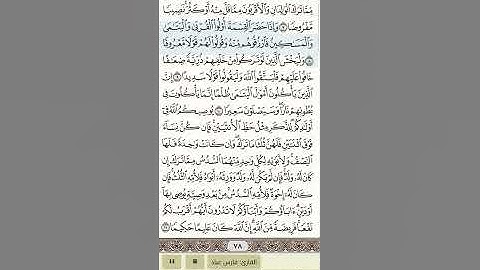 مِّمَّا تَرَكَ ٱلْوَٰلِدَانِ وَٱلْأَقْرَبُونَ مِمَّا قَلَّ مِنْهُ أَوْ كَثُرَ ۚ نَصِيبًا
مَّفْرُوضًا ٧ وَإِذَا حَضَرَ ٱلْقِسْمَةَ أُو۟لُوا۟ ٱلْقُرْبَىٰ وَٱلْيَتَٰمَىٰ
وَٱلْمَسَٰكِينُ فَٱرْزُقُوهُم مِّنْهُ وَقُولُوا۟ لَهُمْ قَوْلًا مَّعْرُوفًا
٨ وَلْيَخْشَ ٱلَّذِينَ لَوْ تَرَكُوا۟ مِنْ خَلْفِهِمْ ذُرِّيَّةً ضِعَٰفًا
خَافُوا۟ عَلَيْهِمْ فَلْيَتَّقُوا۟ ٱللَّهَ وَلْيَقُولُوا۟ قَوْلًا سَدِيدًا ٩ إِنَّ
ٱلَّذِينَ يَأْكُلُونَ أَمْوَٰلَ ٱلْيَتَٰمَىٰ ظُلْمًا إِنَّمَا يَأْكُلُونَ فِى
بُطُونِهِمْ نَارًا ۖ وَسَيَصْلَوْنَ سَعِيرًا ١٠ يُوصِيكُمُ ٱللَّهُ فِىٓ
أَوْلَٰدِكُمْ ۖ لِلذَّكَرِ مِثْلُ حَظِّ ٱلْأُنثَيَيْنِ ۚ فَإِن كُنَّ نِسَآءً
فَوْقَ ٱثْنَتَيْنِ فَلَهُنَّ ثُلُثَا مَا تَرَكَ ۖ وَإِن كَانَتْ وَٰحِدَةً فَلَهَا
ٱلنِّصْفُ ۚ وَلِأَبَوَيْهِ لِكُلِّ وَٰحِدٍ مِّنْهُمَا ٱلسُّدُسُ مِمَّا تَرَكَ إِن
كَانَ لَهُۥ وَلَدٌ ۚ فَإِن لَّمْ يَكُن لَّهُۥ وَلَدٌ وَوَرِثَهُۥٓ أَبَوَاهُ فَلِأُمِّهِ ٱلثُّلُثُ ۚ فَإِن
كَانَ لَهُۥٓ إِخْوَةٌ فَلِأُمِّهِ ٱلسُّدُسُ ۚ مِنۢ بَعْدِ وَصِيَّةٍ يُوصِى بِهَآ
أَوْ دَيْنٍ ۗ ءَابَآؤُكُمْ وَأَبْنَآؤُكُمْ لَا تَدْرُونَ أَيُّهُمْ أَقْرَبُ لَكُمْ
نَفْعًا ۚ فَرِيضَةً مِّنَ ٱللَّهِ ۗ إِنَّ ٱللَّهَ كَانَ عَلِيمًا حَكِيمًا ١١
٧٨
القارئ: فارس عباد